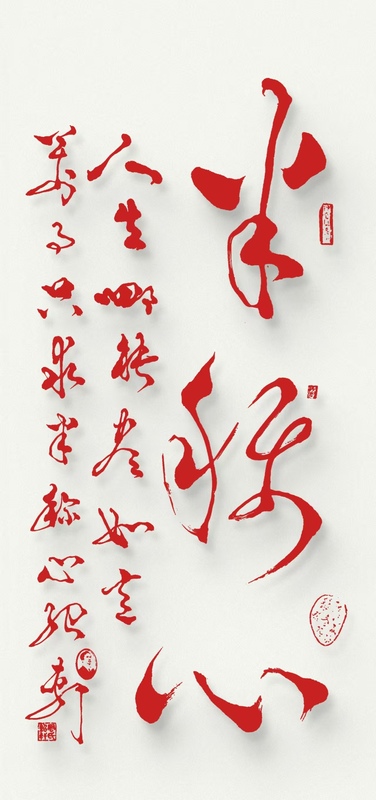 半称心
人生哪能尽如意
万事只求半称心